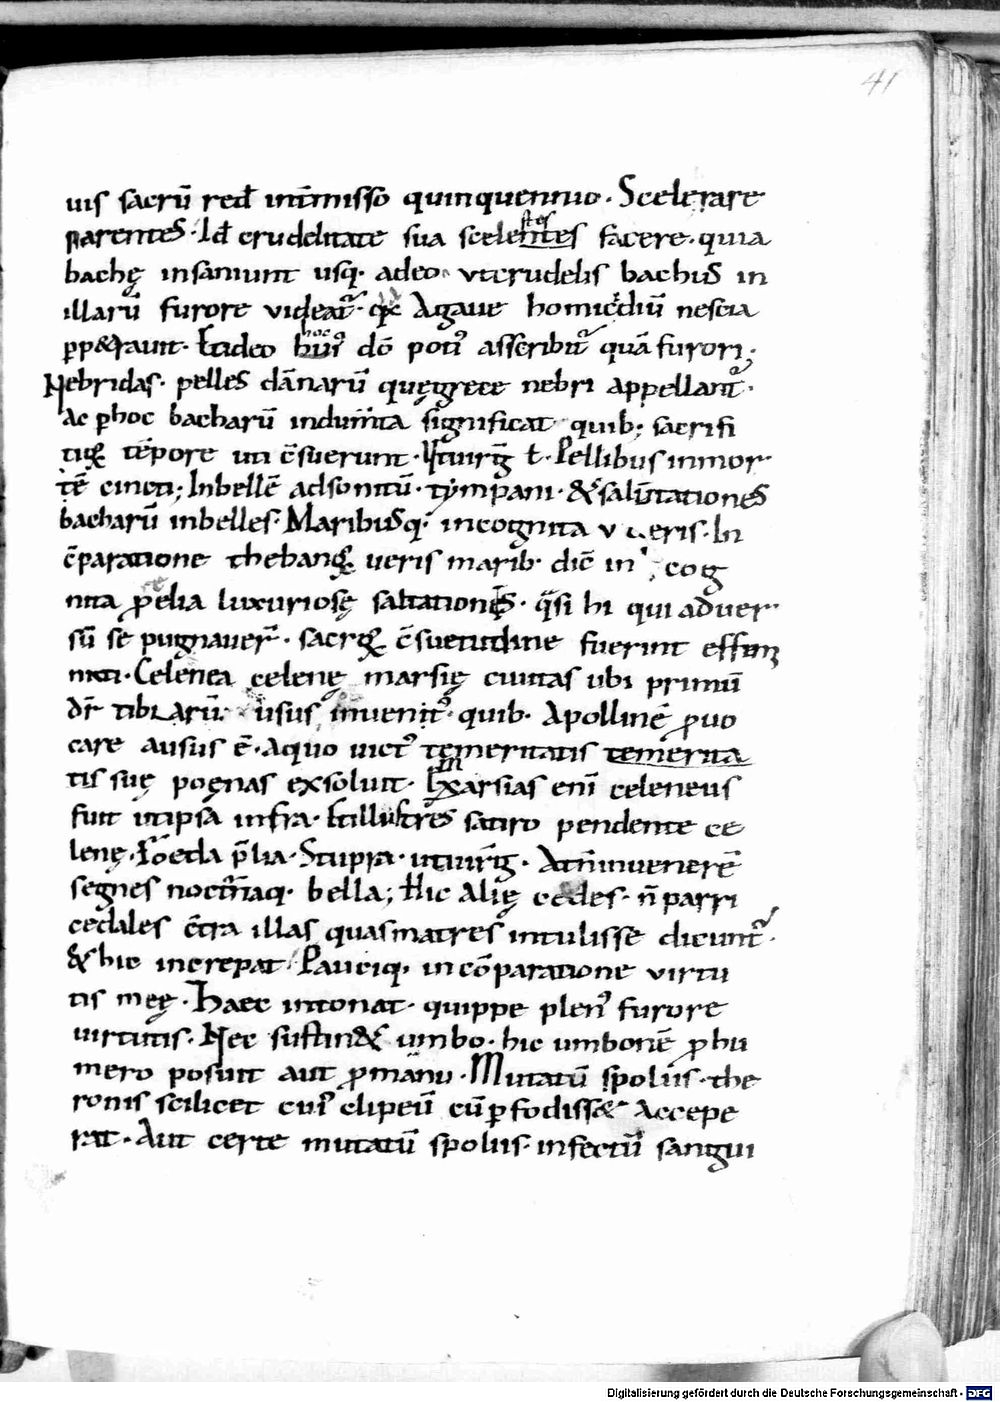 41
uis sacrū red int̄misso quinquennio. Scelerare
parentes. Id crudelitate sua scelentes facere. quia
bachę insaniunt usq. adeo. vt crudelis bachus in
illarū furore videat. Agaue homicidiū nescia
ꝑp&rauit. Et ideo dō poti᾿ asscribit᾿ quā furori;
Nebridas. pelles dānarū quę grece nebri appellant᾿.
ac ꝑ hoc bacharū indum̄ta significat quib; sacrifi
tēpore uti c̄suerunt. Pellibus in mor
tē cincti; Inbellē ad sonitū. tympani. & saltationes
bacharū inbelles. Maribusq. incognita In
c̄paratione theban ueris marib. dic̄ in cog
nita p̄elia luxuriosę saltationes. q̄si hi qui aduer
sū se pugnauer̄. sacr c̄suetudine fuerint
Celenea celenę marsię ciuitas ubi primū
dr̄ tibiarū. usus inuenit᾿. quib. Apollinē ꝓuo
care ausus ē. a quo uict᾿ temeritatis temerita
tis suę poęnas exsoluit. Marsias eni celeneus
fuit ut ipsa infra. Et illustres satiro pendente ce
lenę. Foeda p̄lia. Stupra. ut uirḡ. At n̄ in uenerē
segnes noct̄naq. bella; Hic Alię cedes. n̄ parri
cedales c̄tra illas quas matres intulisse dicunt᾿.
& hic increpat. Pauciq. in cōparatione virtu
tis meę. Haec intonat. quippe plen᾿ furore
virtutis. Nec sustin& umbo. hic umbonē ꝓ hu
mero posuit aut ꝓ manu. Mutatū spoliis. the
ronis scilicet cui᾿ clipeū cū ꝑfodiss& accepe
rat. Aut certe mutatū spoliis. infectū sangui
Digitalisierung gefördert durch die Deutsche Forschungsgemeinschaft - DFG